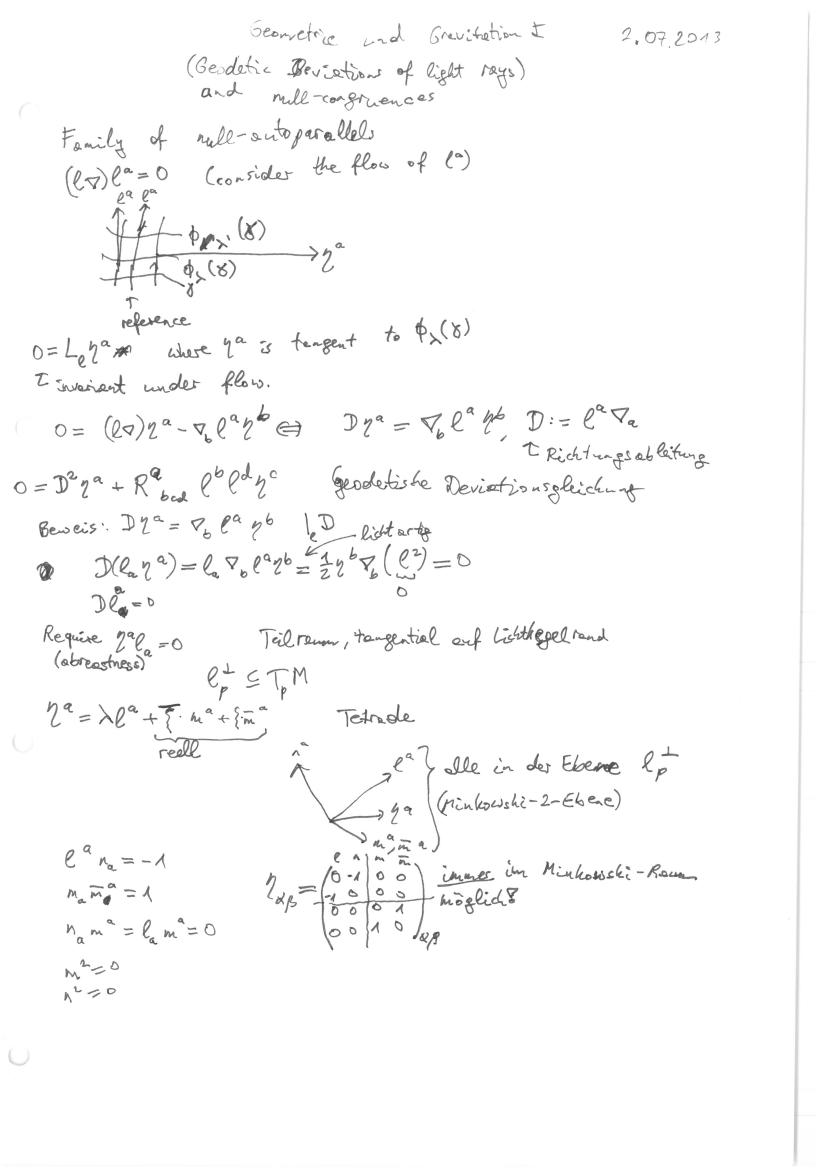 Geometrie und Gravitation I 2.07.2013
(Geodetic Deviations of light rays)
and null-congruences
Family of null-autoparallels
(l∇)lᵃ = 0 (consider the flow of lᵃ)
lᵃ lᵃ
ϕ_λ'(γ)
→ ηᵃ
ϕ_λ(γ)
γ
↑
reference
0 = L_l ηᵃ where ηᵃ is tangent to ϕ_λ(γ)
↑ invariant under flow.
0 = (l∇)ηᵃ − ∇_b lᵃ ηᵇ ⇔ Dηᵃ = ∇_b lᵃ ηᵇ, D := lᵃ∇_a
↑ Richtungsableitung
0 = D²ηᵃ + Rᵃ_bcd lᵇ lᵈ ηᶜ Geodetische Deviationsgleichung
Beweis: Dηᵃ = ∇_b lᵃ ηᵇ |D
lichtartig
D(l_a ηᵃ) = l_a ∇_b lᵃ ηᵇ = ½ ηᵇ ∇_b (l²) = 0
0
Dlᵃ = 0
Require ηᵃ l_a = 0 Teilraum, tangential auf Lichtkegelrand
(abreastness)
l_p^⊥ ⊆ T_p M
ηᵃ = λlᵃ + ξ̄ · mᵃ + ξ m̄ᵃ Tetrade
reell
nᵃ
lᵃ } alle in der Ebene l_p^⊥
ηᵃ (Minkowski-2-Ebene)
mᵃ, m̄ᵃ
lᵃ n_a = −1
m_a m̄ᵃ = 1
n_a mᵃ = l_a mᵃ = 0
m² = 0
n² = 0
l n m m̄
η_αβ = ( 0 -1 0 0
-1 0 0 0
0 0 0 1
0 0 1 0 )_αβ
immer im Minkowski-Raum
möglich!